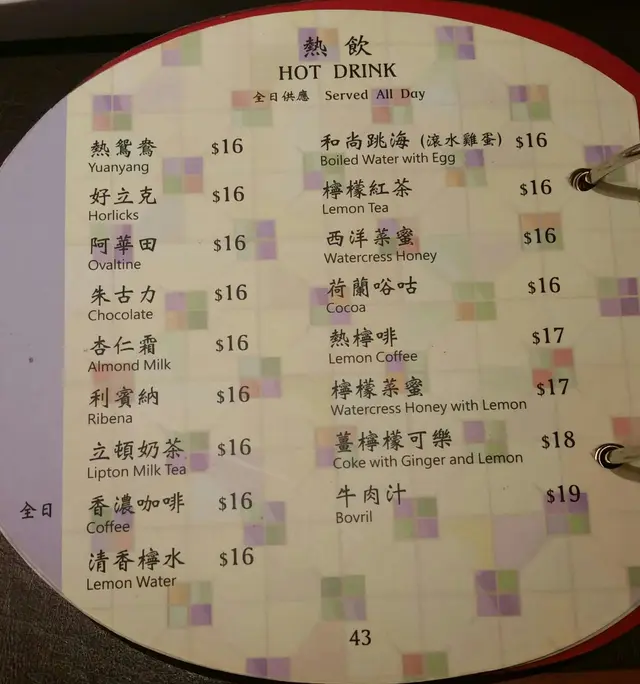 熱飲
HOT DRINK
全日供應 Served All Day
熱鴛鴦 $16
Yuanyang
好立克 $16
Horlicks
阿華田 $16
Ovaltine
朱古力 $16
Chocolate
杏仁霜 $16
Almond Milk
利賓納 $16
Ribena
立頓奶茶 $16
Lipton Milk Tea
香濃咖啡 $16
Coffee
清香檸水 $16
Lemon Water
和尚跳海 (滾水雞蛋) $16
Boiled Water with Egg
檸檬紅茶 $16
Lemon Tea
西洋菜蜜 $16
Watercress Honey
荷蘭唂咕 $16
Cocoa
熱檸啡 $17
Lemon Coffee
檸檬菜蜜 $17
Watercress Honey with Lemon
薑檸檬可樂 $18
Coke with Ginger and Lemon
牛肉汁 $19
Bovril
全日
43